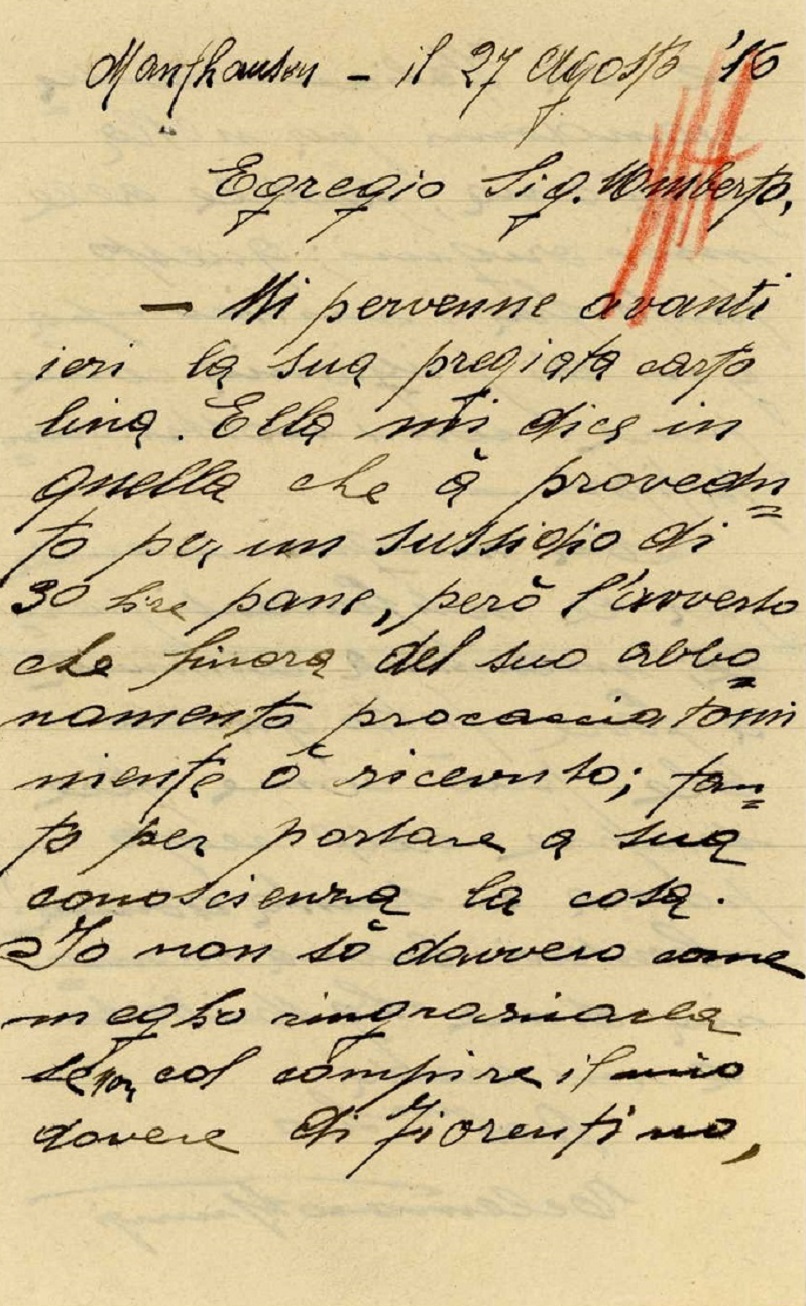 Mauthausen - il 27 Agosto '16
Egregio Sig. Umberto,
— Mi pervenne avanti
ieri la sua pregiata carto
lina. Ella mi dice in
quella che à provedu=
to per un sussidio di
30 lire pane, però l'avverto
che finora del suo abbo=
namento procacciatomi
niente ò ricevuto; tan=
to per portare a sua
conoscienza la cosa.
Io non sò davvero come
meglio ringraziarla
se non col compire il mio
dovere di Fiorentino,